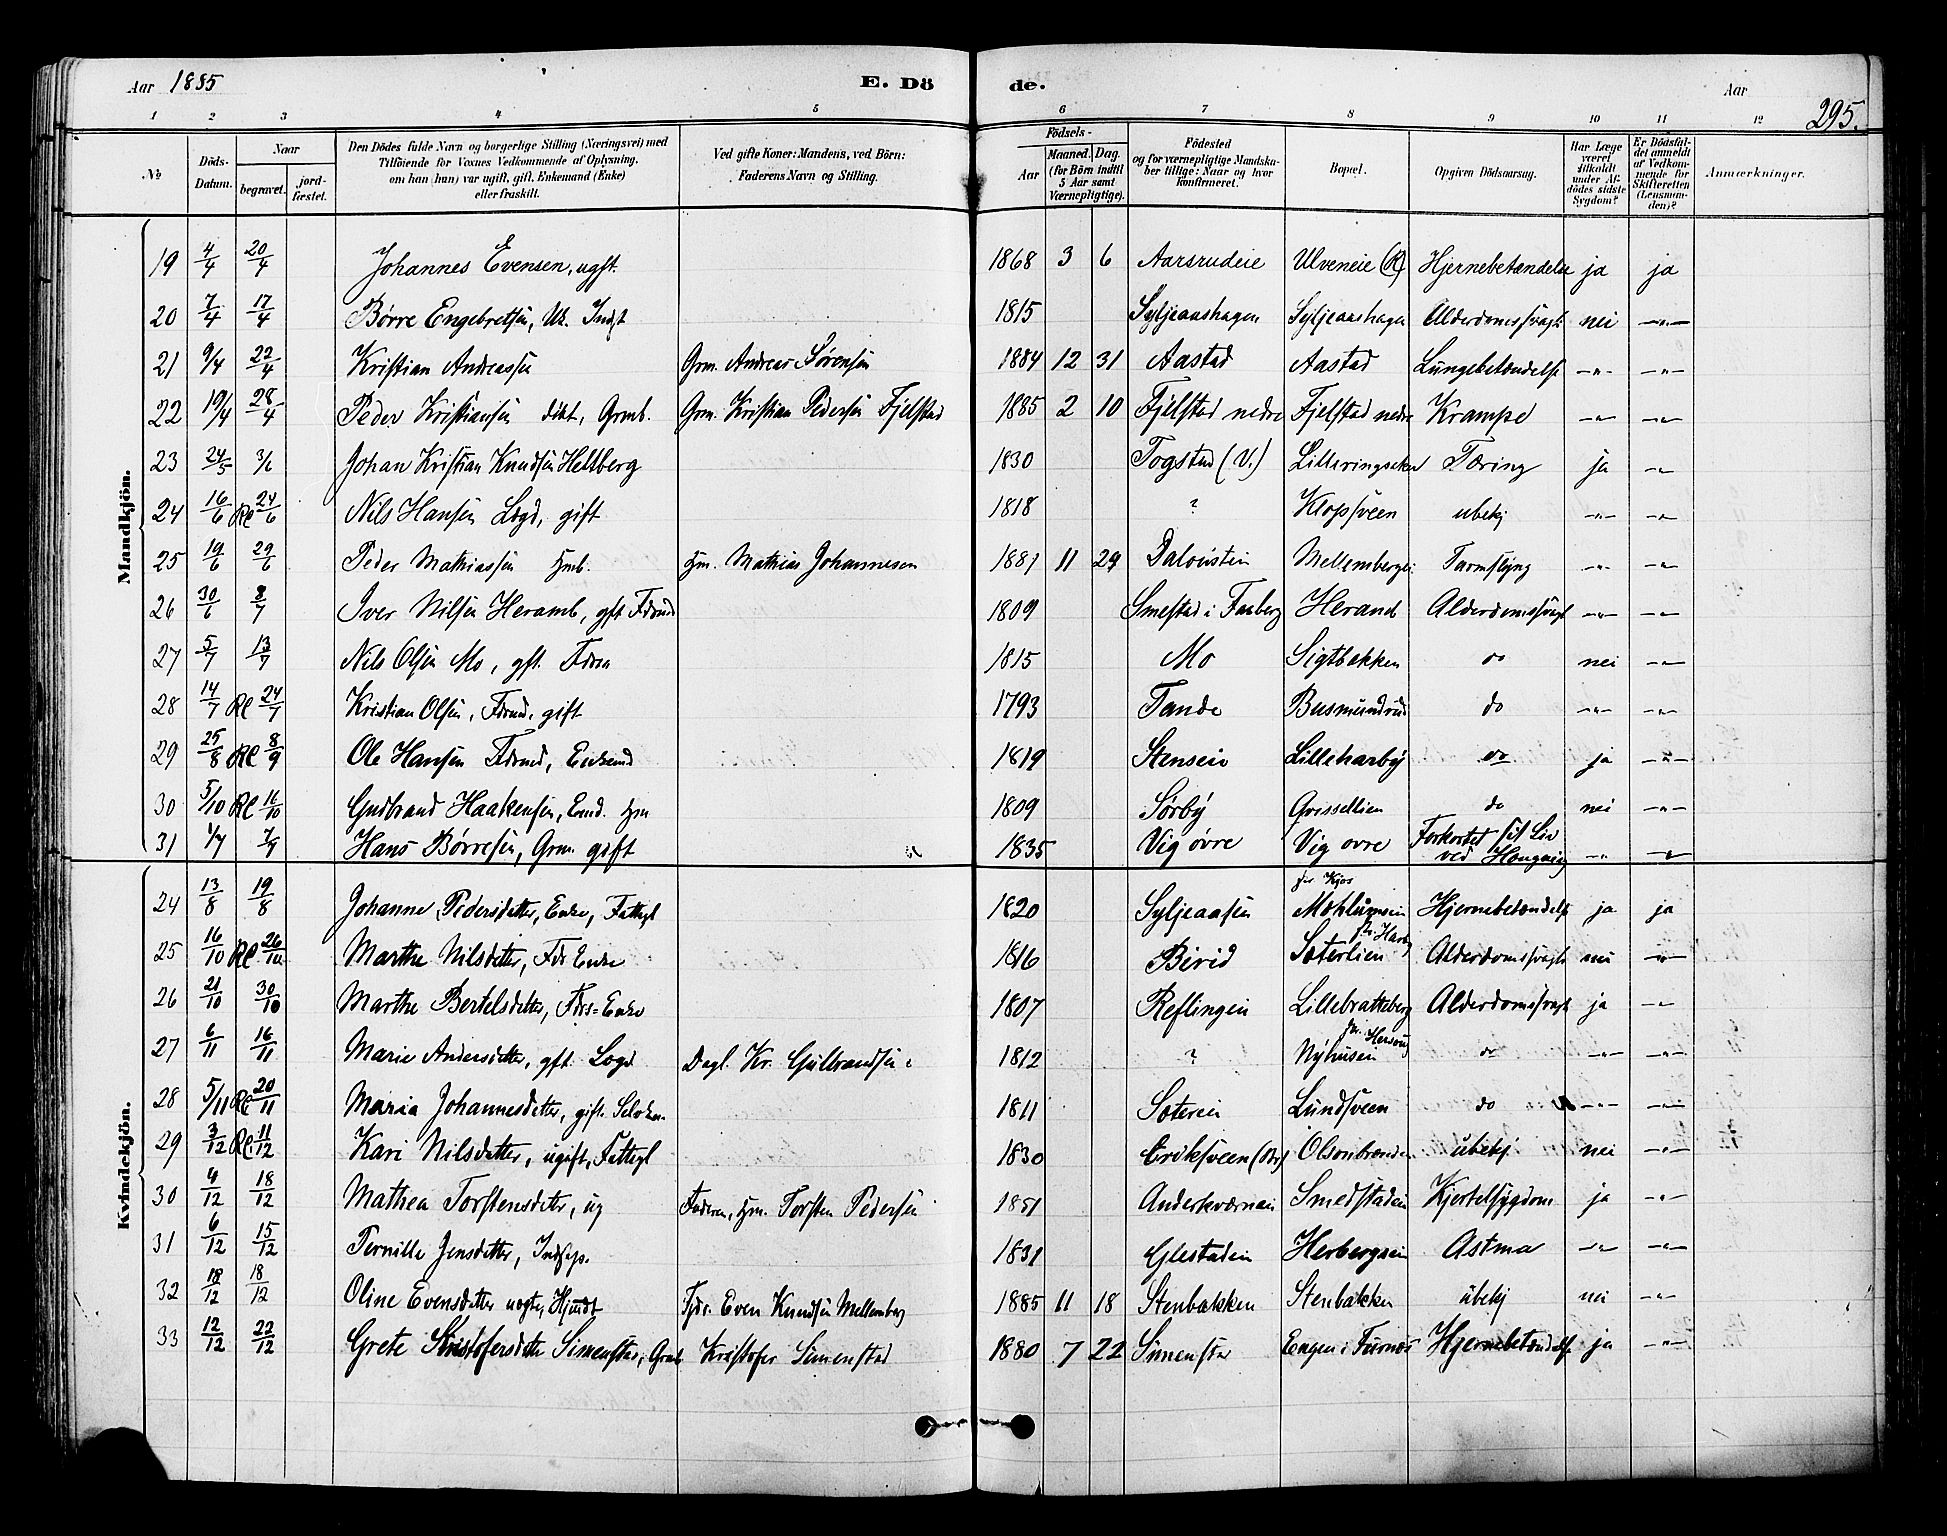 Aar 1885 E. Dö de. Aar 295.
1 2 3 4 5 6 7 8 9 10 11 12
No. Döds-Datum. Naar begravet. jordfæstet. Den Dödes fulde Navn og borgerlige Stilling (Næringsvei) med Tilföiende for Voxnes Vedkommende af Oplysning, om han (hun) var ugift, gift, Enkemand (Enke) eller fraskilt. Ved gifte Koner: Mandens, ved Börn: Faderens Navn og Stilling. Födsels- Aar Maaned. Dag. (for Börn indtil 5 Aar samt Værnepligtige). Födested og for værnepligtige Mandskaber tillige: Naar og hvor konfirmeret. Bopæl. Opgiven Dödsaarsag. Har Læge været tilkaldt under Afdödes sidste Sygdom? Er Dödsfaldet anmeldt af Vedkommende for Skifteretten (Lensmanden)? Anmærkninger.
Mandkjön.
19 4/4 20/4 Johannes Evensen, ugft. 1868 3 6 Aarsrudeie Ulveneie (R) Hjernebetændelse ja ja
20 7/4 17/4 Børre Engebretsen, Uk. Indst 1815 Syljeaashagen Syljeaashagen Alderdomssvagh nei -"-
21 9/4 22/4 Kristian Andreassen Grm. Andreas Sørensen 1884 12 31 Aastad Aastad Lungebetændelse -"- -"-
22 19/4 28/4 Peder Kristiansen dikt, Grmb. Grm. Kristian Pedersen Fjelstad 1885 2 10 Fjelstad nedre Fjelstad nedre Krampe -"- -"-
23 24/5 3/6 Johan Kristian Knudsen Helsberg 1830 Togstad (V.) Lilleringseken Tæring ja -"-
24 16/6 Re 24/6 Nils Hansen Logd, gift 1818 ? Klopsveen ubekj -"- -"-
25 19/6 29/6 Peder Mathiassen Hmb. Hm. Mathias Johannesen 1881 11 29 Mellembergei Tarmslyng -"- -"-
26 30/6 8/7 Iver Nilsen Heramb, gft Fdrmd 1809 Smestad i Faaberg Herand Alderdomssvagh -"- -"-
27 5/7 13/7 Nils Olsen Mo, gft. Fdrm 1815 Mo Sigtbakken do nei -"-
28 14/7 Re 24/7 Kristian Olsen, Fdrmd. gift 1793 Tande Busmundrud do -"- -"-
29 25/8 Re 8/9 Ole Hansen Fdrmd, Enkemd 1819 Stenseie Lilleharby do ja -"-
30 5/10 Re 16/10 Gudbrand Haakensen, Emd. Hm 1809 Sørby Grissellien do nei -"-
31 1/7 7/9 Hans Børresen, Grm. gift 1835 Vig øvre Vig øvre Forkortet sit Liv ved Hængning -"- -"-
Kvindekjön.
24 13/8 19/8 Johanne Pedersdatter, Enke, Fattigl 1820 Syljeaasen Mohlumsein Hjernebetændelse ja ja
25 16/10 Re 26/10 Marthe Nilsdatter, Fdr Enke 1816 Birid Sæterlien Alderdomssvagh nei -"-
26 21/10 30/10 Marthe Bertelsdatter, Fdrs=Enke 1807 Reflingen Lillebratteberg Alderdomssvagh ja -"-
27 6/11 16/11 Marie Andersdatter, gft. Logd Dagl. Kr. Gulbrandsen 1812 ? Nyhusein do -"- -"-
28 5/11 Re 20/11 Maria Johannesdatter, gift. 1811 Sæterein Lundsveen do -"- -"-
29 3/12 Re 11/12 Kari Nilsdatter, ugift, Fattigl 1830 Eriksveen Olsonbrænden ubekj nei -"-
30 4/12 18/12 Mathea Torstensdatter, ug Faderen, Hm. Torsten Pedersen 1851 Anderskværnein Smedstadein Kjertelsygdom ja -"-
31 6/12 15/12 Pernille Jensdatter, 1831 Glestadein Herbergsein Astma -"- -"-
32 18/12 18/12 Oline Evensdatter uægte, Hjmdt Fdr. Even Knudsen Mellemberg 1885 11 18 Stenbakken Stenbakken ubekj nei -"-
33 12/12 22/12 Grete Kristofersdatter Simenstad, Grmb Kristofer Simenstad 1880 7 22 Simenstad Engen i Furnes Hjernebetændelse ja -"-